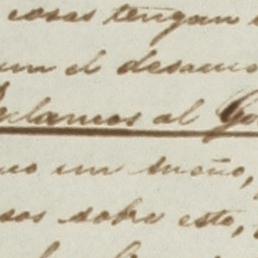 cosas tengan
un el desacu
clamos al Go
un sueño,
sos sobre esto,